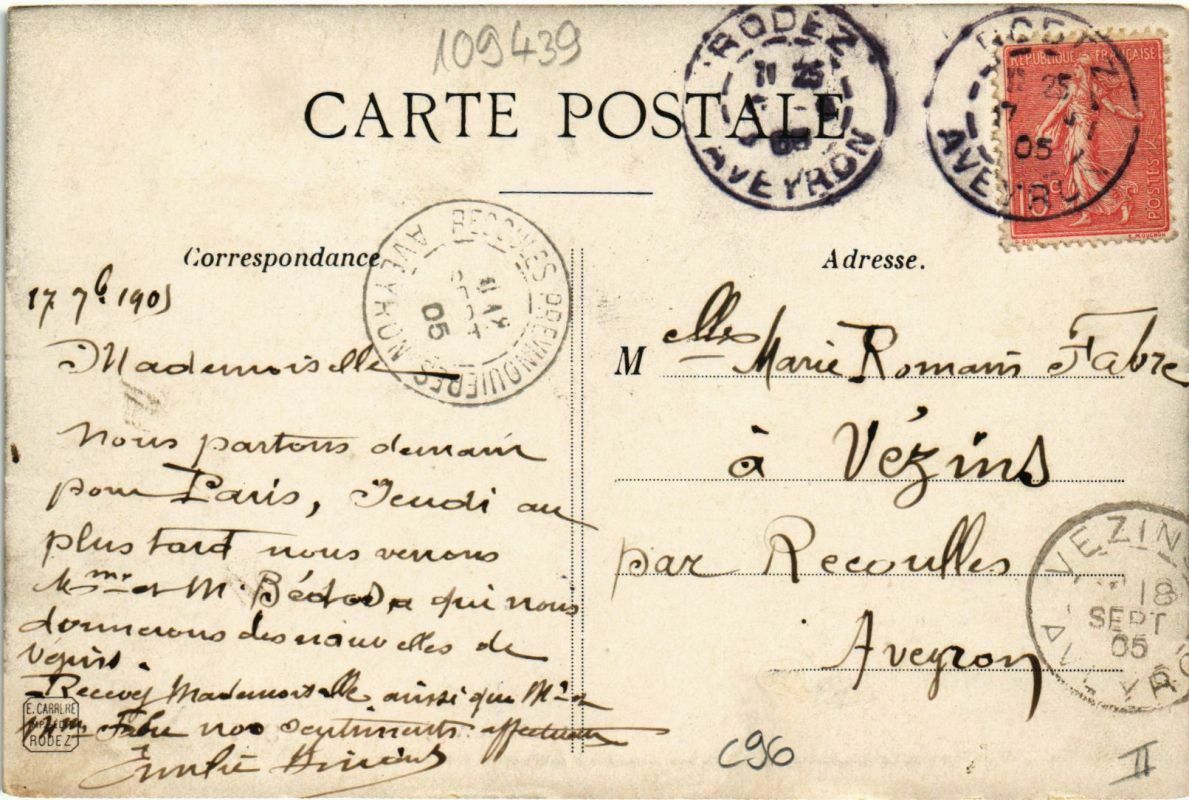 109439
CARTE POSTALE
RODEZ
11 25
05
AVEYRON
RODEZ
25
17
05
AVEYRON
RÉPUBLIQUE FRANÇAISE
POSTES
10 c
Correspondance
RECOULES PREVINQUIERES
AVEYRON
05
Adresse.
17 7b 1905
Mademoiselle
Nous partons demain
pour Paris, Jeudi au
plus tard nous verrons
Mme et M. qui nous
donnerons des nouvelles de
Vezins.
Recevez Mademoiselle ainsi que Mr et
Mme Fabre nos sentiments affectueux
E. CARRERE
RODEZ
M elles Marie Romain Fabre
à Vézins
par Recoulles
Aveyron
VEZINS
18
SEPT
05
AVEYRON
C96
II